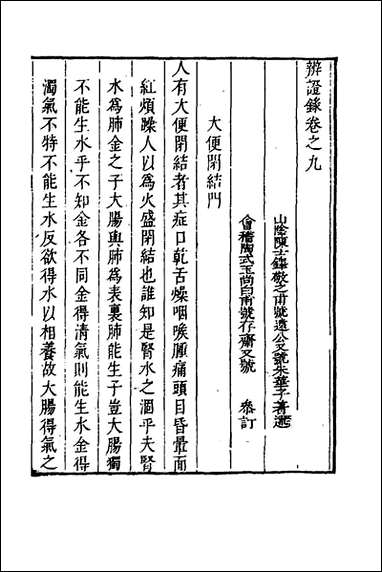 辨證錄卷之九
山陰陳士鐸敬之甫號遠公又號朱華子著述
會稽陶式玉尚白甫號存齋又號　參訂
大便閉結門
人有大便閉結者其症口乾舌燥咽喉腫痛頭目昏暈面
紅煩躁人以為火盛閉結也誰知是腎水之涸乎夫腎
水為肺金之子大腸與肺為表裏肺能生子豈大腸獨
不能生水乎不知金各不同金得清氣則能生水金得
濁氣不特不能生水反欲得水以相養故大腸得氣之